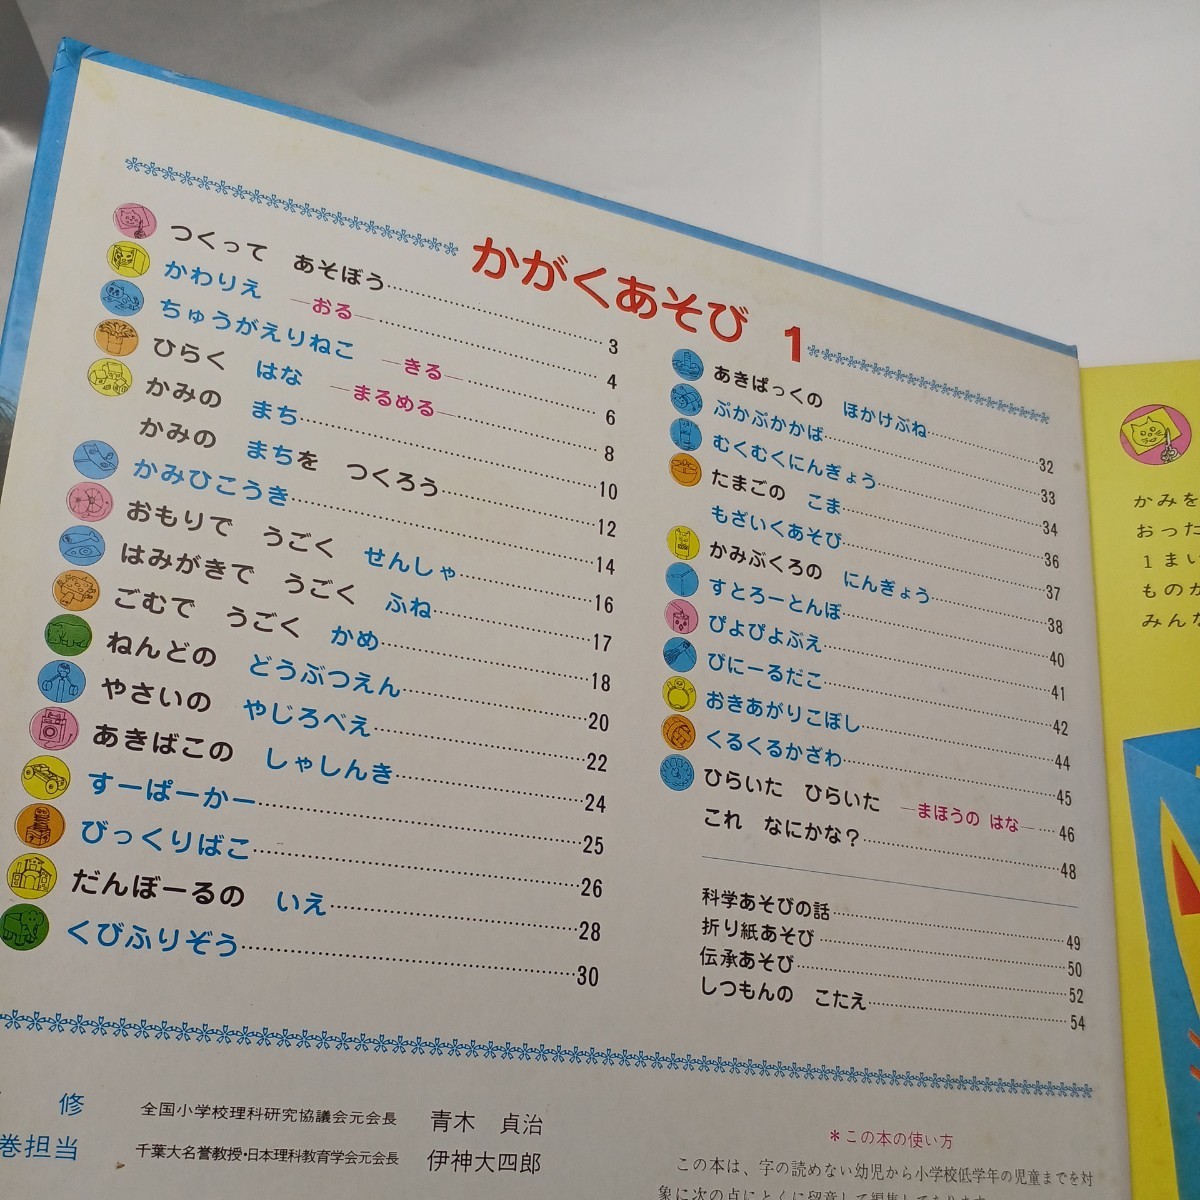 かがくあそび 1
つくって あそぼう……3
かわりえ ―おる―……4
ちゅうがえりねこ ―きる―……6
ひらく はな ―まるめる―……8
かみの まち……10
かみの まちを つくろう……12
かみひこうき……14
おもりで うごく せんしゃ……16
はみがきで うごく ふね……17
ごむで うごく かめ……18
ねんどの どうぶつえん……20
やさいの やじろべえ……22
あきばこの しゃしんき……24
すーぱーかー……25
びっくりばこ……26
だんぼーるの いえ……28
くびふりぞう……30
あきぱっくの ほかけぶね……32
ぷかぷかかば……33
むくむくにんぎょう……34
たまごの こま……36
もざいくあそび……37
かみぶくろの にんぎょう……38
すとろーとんぼ……40
ぴよぴよぶえ……41
びにーるだこ……42
おきあがりこぼし……44
くるくるかざわ……45
ひらいた ひらいた ―まほうの はな―……46
これ なにかな？……48
科学あそびの話……49
折り紙あそび……50
伝承あそび……52
しつもんの こたえ……54
修 全国小学校理科研究協議会元会長 青木 貞治
巻担当 千葉大名誉教授・日本理科教育学会元会長 伊神大四郎
＊この本の使い方
この本は、字の読めない幼児から小学校低学年の児童までを対
象に次の点にとくに留意して編集してあります
かみを
おった
1まい
ものが
みんな